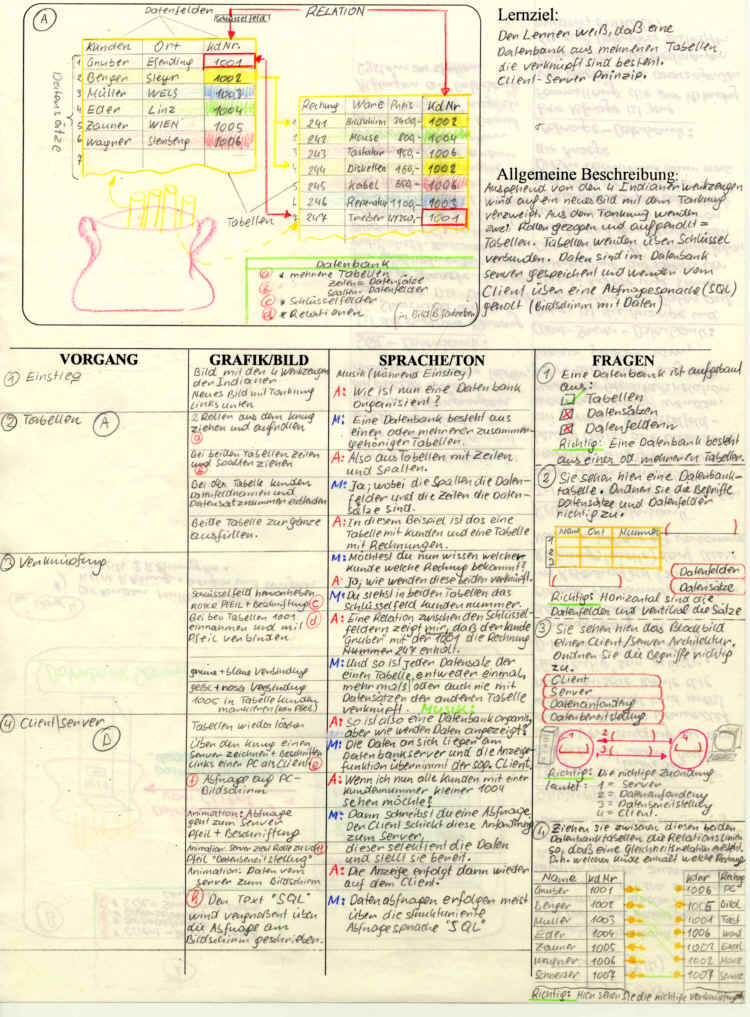 A
Datenfelder
Schlüsselfeld
RELATION
Kunden Ort KdNr.
1 Gruber Eferding 1001
2 Berger Steyr 1002
3 Müller WELS 1003
4 Eder Linz 1004
5 Zauner WIEN 1005
6 Wagner 1006
7
Datensätze
Rechnung Ware Preis KdNr
241 Bildschirm 3400,- 1002
242 Mouse 800,- 1004
243 Tastatur 950,- 1006
244 Disketten 160,- 1002
245 Kabel 650,- 1006
246 Reperatur 1100,- 1003
247 Treiber 1001
Tabellen
Datenbank
a * mehrere Tabellen
b zeilen = Datensätze
spalten = Datenfelder
c * Schlüsselfelder
d * Relationen (in Bild B schreiben)
Lernziel:
Der Lerner weiß, daß eine
Datenbank aus mehreren Tabellen
die verknüpft sind besteht.
Client-Server Prinzip.
Allgemeine Beschreibung:
Ausgehend von den 4 Indianerwerkzeugen
wird auf ein neues Bild mit dem Tonkrug
verzweigt. Aus dem Tonkrug werden
zwei Rollen gezogen und aufgerollt =
Tabellen. Tabellen werden über Schlüssel
verbunden. Daten sind im Datenbank
server gespeichert und werden vom
Client über eine Abfragesprache (SQL)
geholt (Bildschirm mit Daten)
VORGANG
1 Einstieg
2 Tabellen A
3 Verknüpfung
4 Client/server
D
GRAFIK/BILD
Bild mit den 4 Werkzeugen
der Indianer
Neues Bild mit Tonkrug
links unten
2 Rollen aus dem Krug
ziehen und aufrollen
a
Bei beiden Tabellen zeilen
und Spalten ziehen
b
Bei der Tabelle Kunden
Datenfeldnamen und
Datensatznummern einblenden
Beide Tabelle zur gänze
ausfüllen.
Schlüsselfeld hervorheben
roter Pfeil + Beschriftung c
Bei beo Tabellen 1001
einrahmen und mit d
Pfeil verbinden
grüne + blaue Verbindung
gelbe + rosa Verbindung
1005 in Tabelle Kunden
markieren (kein Pfeil)
Tabellen wieder lösen
Über den Krug einen
Server zeichnen + beschriften
Links einen PC als Client e
f Abfrage auf PC-
Bildschirm
Animation: Abfrage
geht zum Server
Pfeil + Beschriftung
Pfeil "Datenbereitstellung"
Animation: Daten vom
server zum Bildschirm
h Der Text "SQL"
wird vergrößert über
die Abfrage am
Bildschirm geschrieben.
SPRACHE/TON
Musik (Während Einstieg)
A: Wie ist nun eine Datenbank
organisiert?
M: Eine Datenbank besteht aus
einer oder mehreren zusammen-
gehörigen Tabellen.
A: Also aus Tabellen mit Zeilen
und Spalten.
M: Ja, wobei die Spalten die Daten-
felder und die Zeilen die Daten-
sätze sind.
A: In diesem Beispiel ist das eine
Tabelle mit Kunden und eine Tabelle
mit Rechnungen.
M: Möchtest du nun wissen welcher
Kunde welche Rechnug bekommt?
A: Ja, wie werden diese beiden verknüpft.
M: Du siehst in beiden Tabellen das
Schlüsselfeld Kundennummer.
A: Eine Relation zwischen den Schlüssel-
feldern zeigt mir, daß der Kunde
Gruber mit der 1001 die Rechnung
Nummer 247 erhält.
M: Und so ist jeder Datensatz der
einen Tabelle, entweder einmal,
mehrmals oder auch nie mit
Datensätzen der anderen Tabelle
verknüpft. Musik:
A: So ist also eine Datenbank organis,
aber wie werden Daten angezeigt?
M: Die Daten an sich liegen am
Datenbankserver und die Anzeige-
funktion übernimmt der sog. Client.
A: Wenn ich nun alle Kunden mit einer
Kundennummer kleiner 1004
sehen möchte?
M: Dann schreibst du eine Abfrage.
Der Client schickt diese Anforderung
zum Server,
dieser selektiert die Daten
und stellt sie bereit.
A: Die Anzeige erfolgt dann wieder
auf dem Client.
M: Datenabfragen erfolgen meist
über die strukturierte
Abfragesprache "SQL"
FRAGEN
1 Eine Datenbank ist aufgebaut
aus:
Tabellen
Datensätzen
Datenfeldern
Richtig: Eine Datenbank besteht
aus einer od. mehreren Tabellen.
2 Sie sehen hier eine Datenbank-
tabelle. Ordnen Sie die Begriffe
Datensätze und Datenfelder
richtig zu.
Name Ort Nummer
1
2
3
Datenfelder
Datensätze
Richtig: Horizontal sind die
Datenfelder und vertikal die Sätze
3 Sie sehen hier das Blockbild
einer Client/Server Architektur.
Ordnen Sie die Begriffe richtig
zu.
Client
Server
Datenanforderung
Datenbereitstellung
1 2 3 4
Richtig: Die richtige Zuordnung
lautet: 1 = Server
2 = Datenanforderung
3 = Datenbereitstellung
4 = Client.
4 Ziehen Sie zwischen diesen beiden
Datenbanktabellen die Relationslinien
so, daß eine Gleichheitsrelation entsteht.
D.h. welcher Kunde erhält welche Rechnung
Name Kd Nr Kdnr Rechng
Gruber 1001 1006 PC
Berger 1002 1005 Bild
Müller 1003 1001 Tast
Eder 1004 1006
Zauner 1005
Wagner 1006 1002 Maus
1007 1007
Richtig: Hier sehen Sie die richtige Verknüpfung